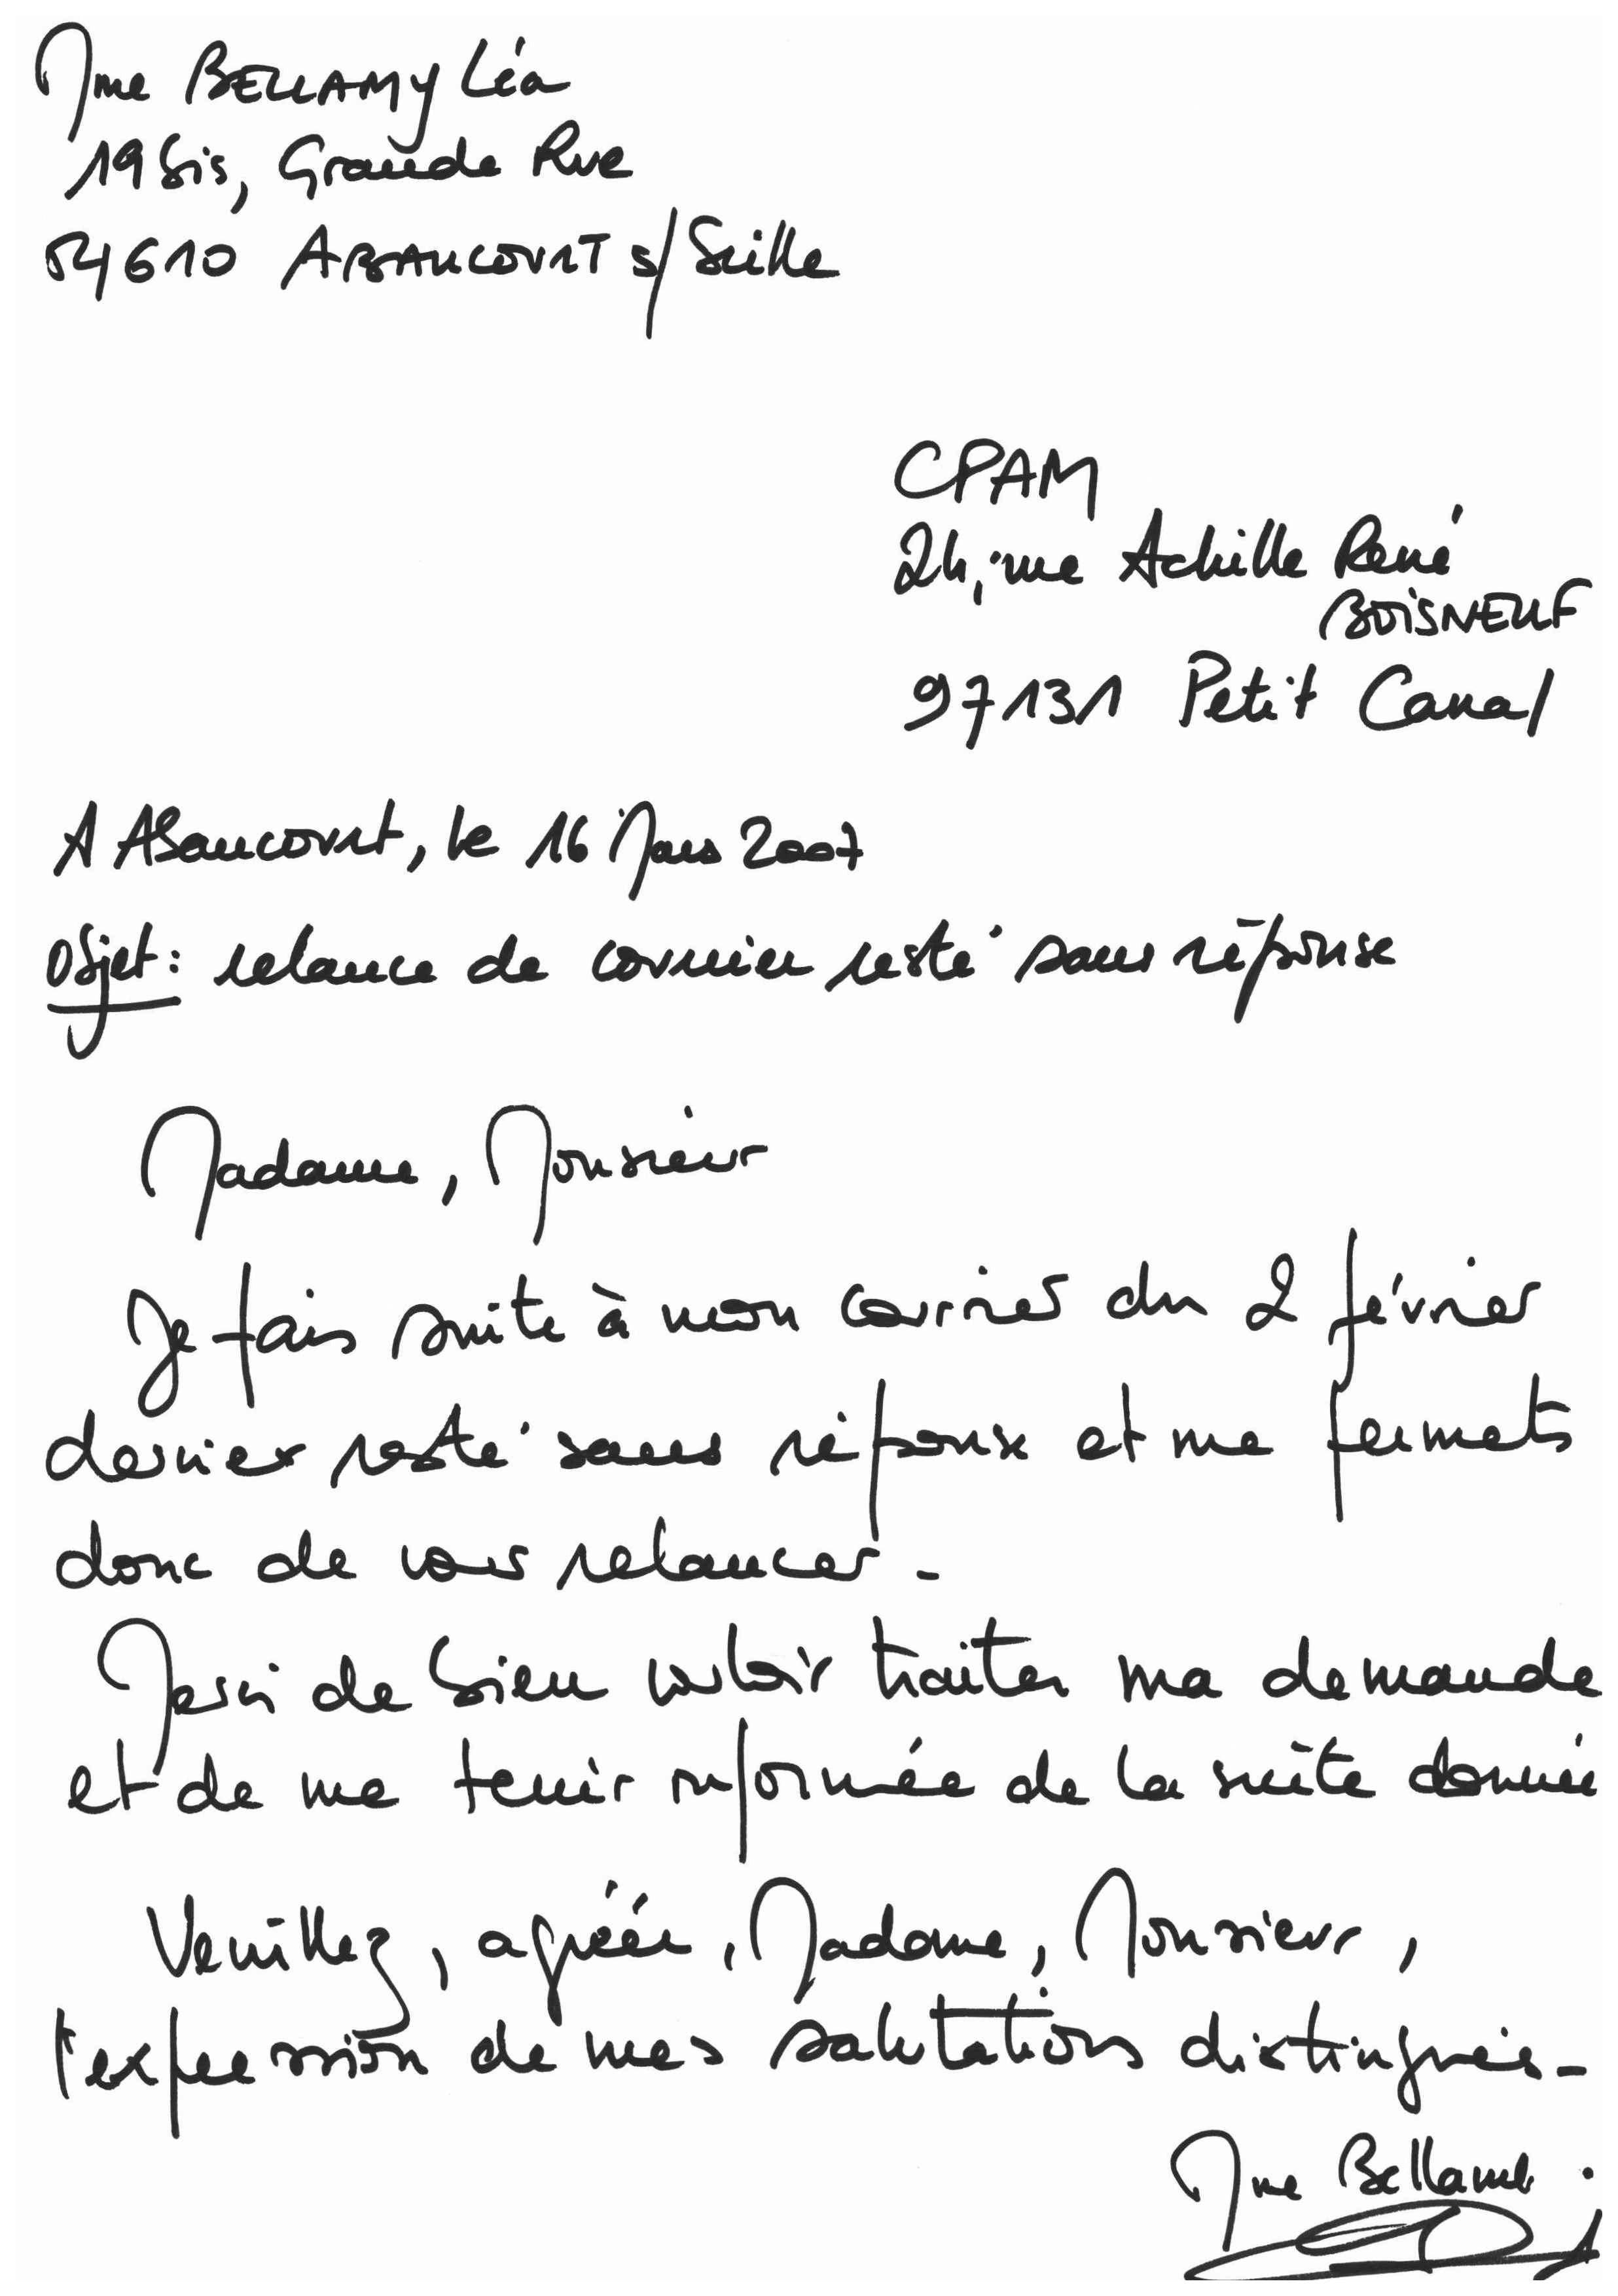 Mme BELLAMY Léa
19 bis, Grande Rue
54610 ABAUCOURT s/Seille
CPAM
24, rue Achille René
BOISNEUF
97131 Petit Canal
A Abaucourt, le 16 Mars 2007
Objet : relance de courrier resté sans réponse
Madame, Monsieur
Je fais suite à mon courrier du 2 février
dernier resté sans réponse et me permets
donc de vous relancer.
Merci de bien vouloir traiter ma demande
et de me tenir informée de la suite donnée
Veuillez, agréér, Madame, Monsieur,
l'expression de mes salutations distinguées.
Mme Bellamy